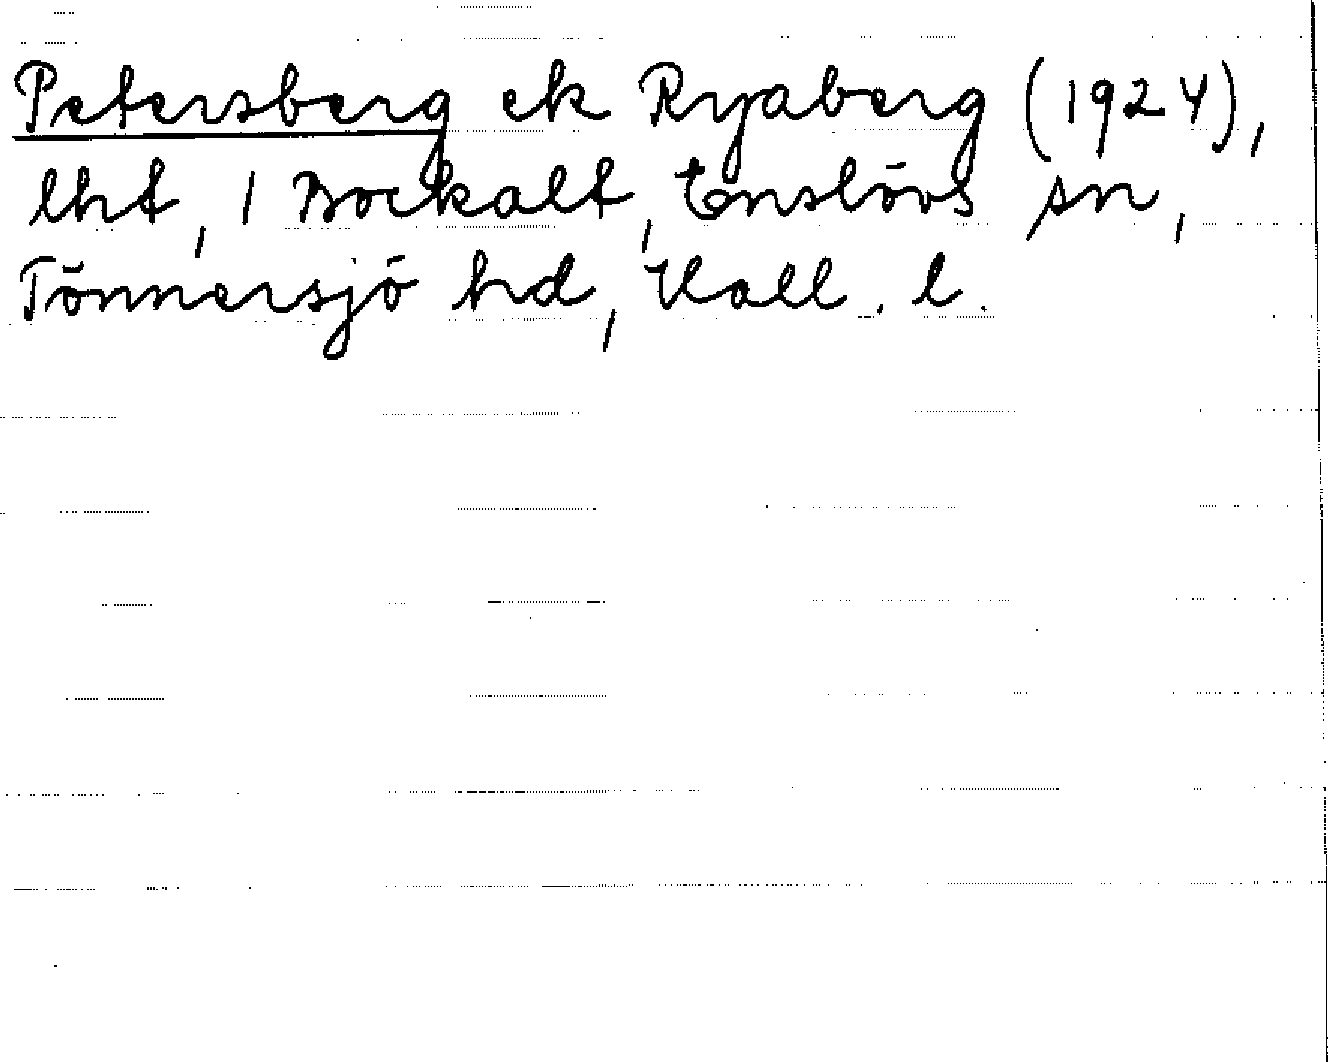 Petersberg el Ryaberg (1924),
lht, 1 Bockalt, Enslövs sn,
Tönnersjö hd, Hall. l.